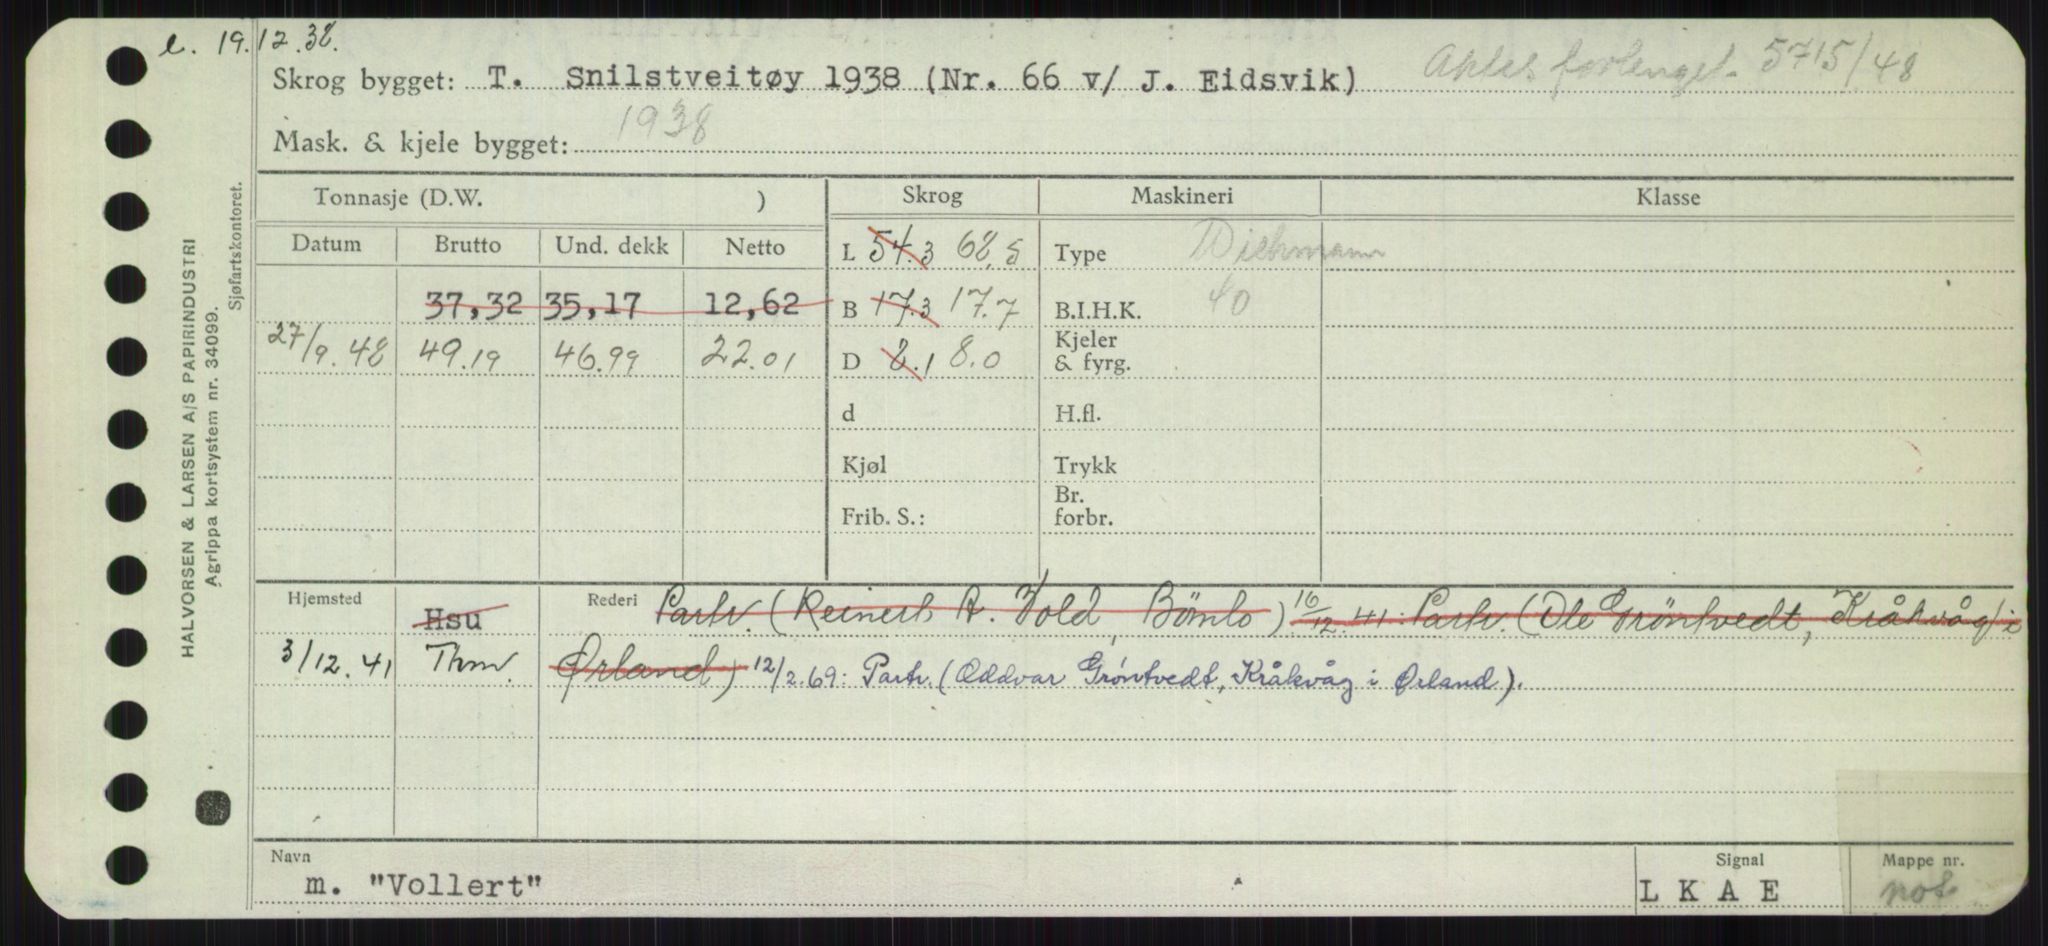 l. 19.12.38.
Skrog bygget: T. Snilstveitøy 1938 (Nr. 66 v/ J. Eidsvik) forlenget 5715/48
Mask. & kjele bygget: 1938
Tonnasje (D.W. ) Skrog Maskineri Klasse
Datum Brutto Und. dekk Netto
L 54.3 68.5 Type Wichmann
37,32 35,17 12,62 B 17.3 17.7 B.I.H.K. 40
27/9.48 49.19 46.99 22.01 D 8.1 8.0 Kjeler & fyrg.
d H.fl.
Kjøl Trykk
Frib. S.: Br. forbr.
Hjemsted Hsu Rederi Partr. (Reinert A. Vold, Bömlo) 16/12.41: Partr. (Ole Gröntvedt, Kråkvåg i
3/12.41 Thm. Ørland) 12/2.69: Partr. (Oddvar Grøntvedt, Kråkvåg i Ørland).
Navn Signal Mappe nr.
m. "Vollert" L K A E not
HALVORSEN & LARSEN A/S PAPIRINDUSTRI
Agrippa kortsystem nr. 34099.
Sjøfartskontoret.